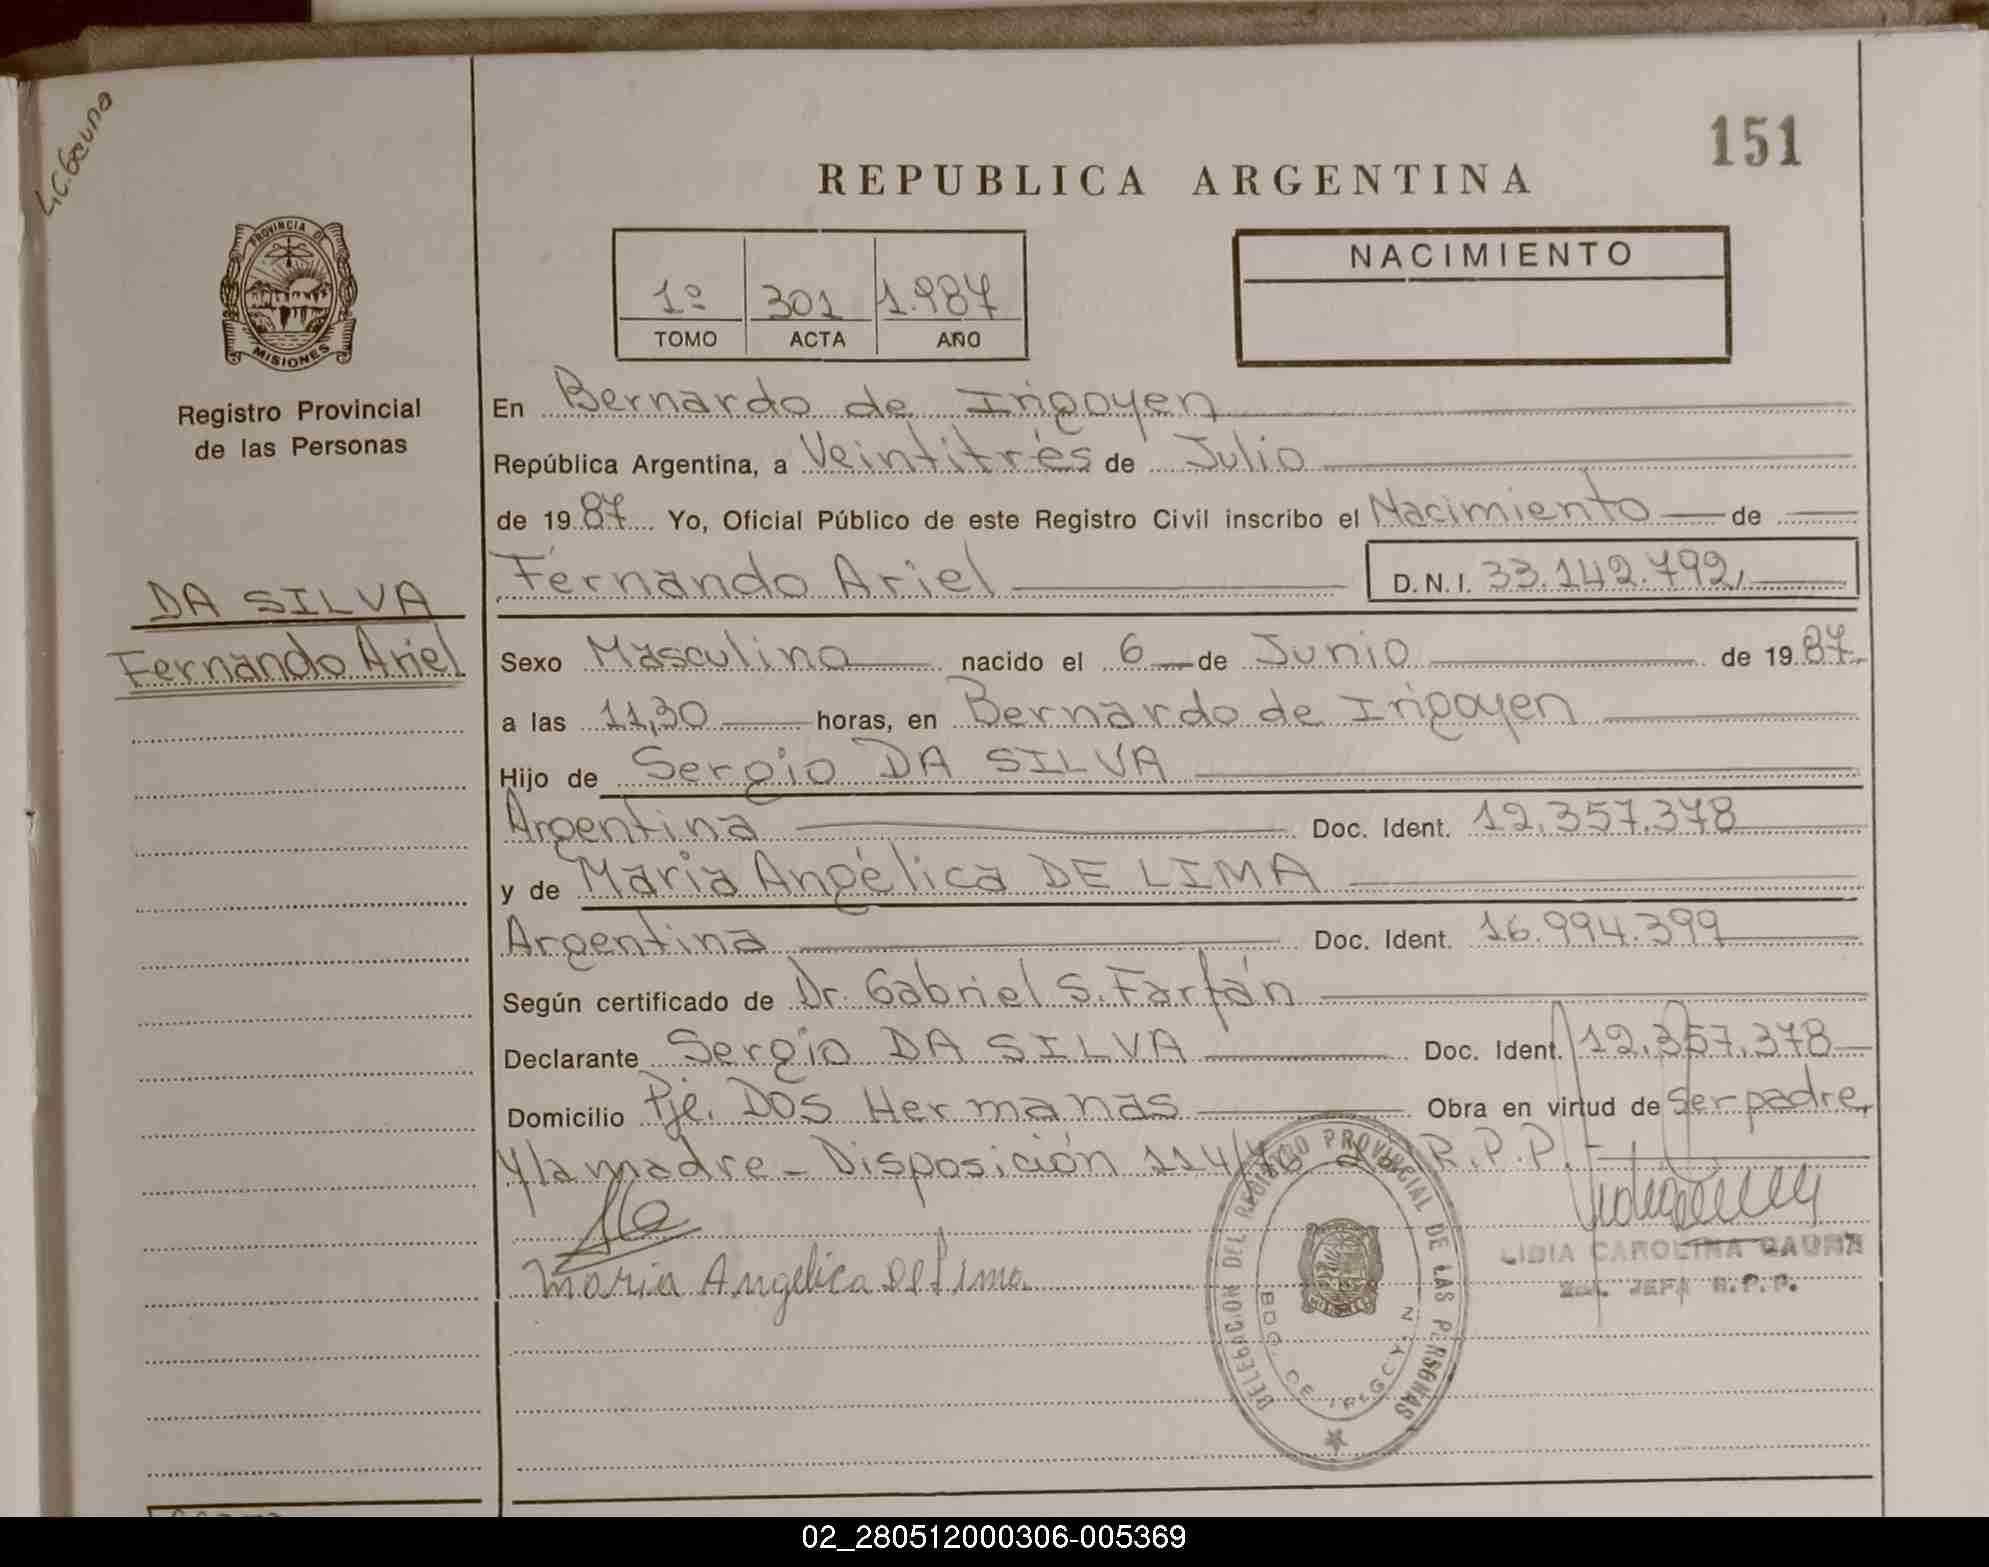 L.C. Gauna
151
REPUBLICA ARGENTINA
PROVINCIA DE
MISIONES
Registro Provincial
de las Personas
1º 301 1.987
TOMO ACTA AÑO
NACIMIENTO
DA SILVA
Fernando Ariel
En Bernardo de Irigoyen
República Argentina, a Veintitrés de Julio
de 19 87 Yo, Oficial Público de este Registro Civil inscribo el Nacimiento de
Fernando Ariel D.N.I. 33.142.792
Sexo Masculino nacido el 6 de Junio de 19 87
a las 11,30 horas, en Bernardo de Irigoyen
Hijo de Sergio DA SILVA
Argentina Doc. Ident. 12.357.378
y de Maria Angélica DE LIMA
Argentina Doc. Ident. 16.994.399
Según certificado de Dr. Gabriel S. Farfán
Declarante Sergio DA SILVA Doc. Ident. 12.357.378
Domicilio Pje. Dos Hermanas Obra en virtud de Ser padre
y la madre - Disposición 114/76 R.P.P.
Maria Angelica De Lima
DELEGACION DEL REGISTRO PROVINCIAL DE LAS PERSONAS
BDO. DE IRIGOYEN
LIDIA CAROLINA GAUNA
JEFA R.P.P.
02_280512000306-005369